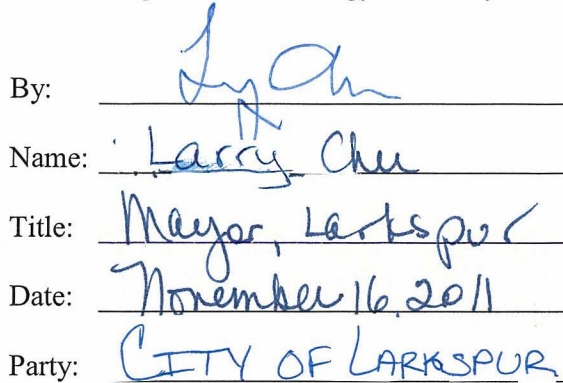 By: Larry Chu
Name: Larry Chu
Title: Mayor, Larkspur
Date: November 16, 2011
Party: CITY OF LARKSPUR